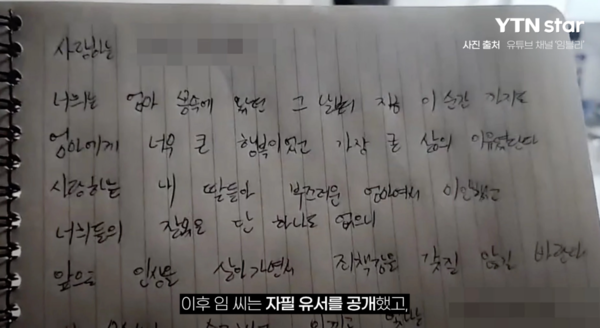 YTN star
사진 출처 유튜브 채널 '임블리'
사랑하는
너희는 엄마 뱃속에 왔던 그 날부터 지금 이 순간 까지도
엄마에게 너무 큰 행복이었고 가장 큰 삶의 이유였단다
사랑하는 내 딸들아 부끄러운 엄마여서 미안했고
너희들의 잘못은 단 하나도 없으니
앞으로 인생을 살아가면서 죄책감을 갖질 않길 바란다.
이후 임 씨는 자필 유서를 공개했고,